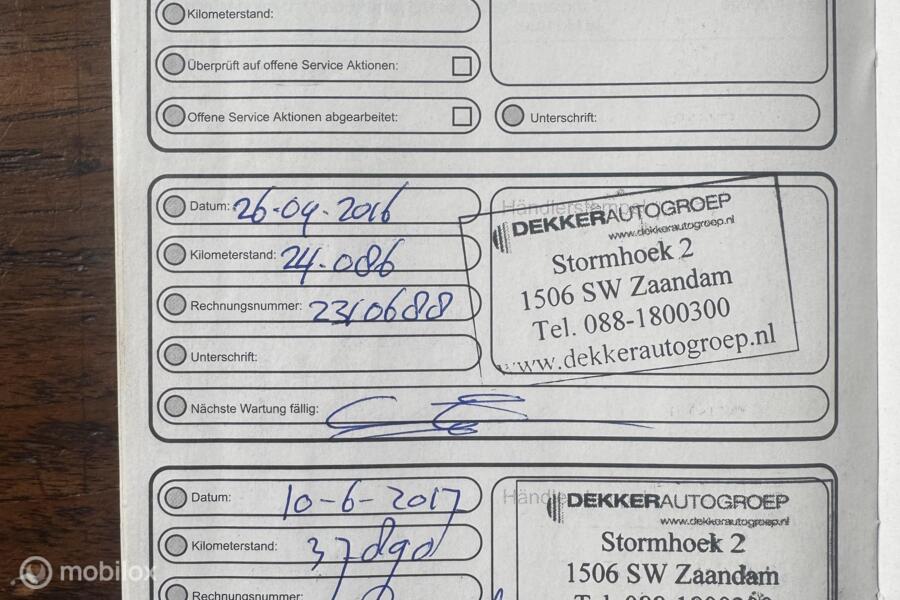 Kilometerstand:
Überprüft auf offene Service Aktionen:
Offene Service Aktionen abgearbeitet:
Unterschrift:
Datum: 26-04-2016
Kilometerstand: 24.086
Rechnungsnummer: 2310688
Unterschrift:
Nächste Wartung fällig:
Händlerstempel
DEKKERAUTOGROEP
www.dekkerautogroep.nl
Stormhoek 2
1506 SW Zaandam
Tel. 088-1800300
www.dekkerautogroep.nl
Datum: 10-6-2017
Kilometerstand:
Rechnungsnummer:
DEKKERAUTOGROEP
www.dekkerautogroep.nl
Stormhoek 2
1506 SW Zaandam
mobilox